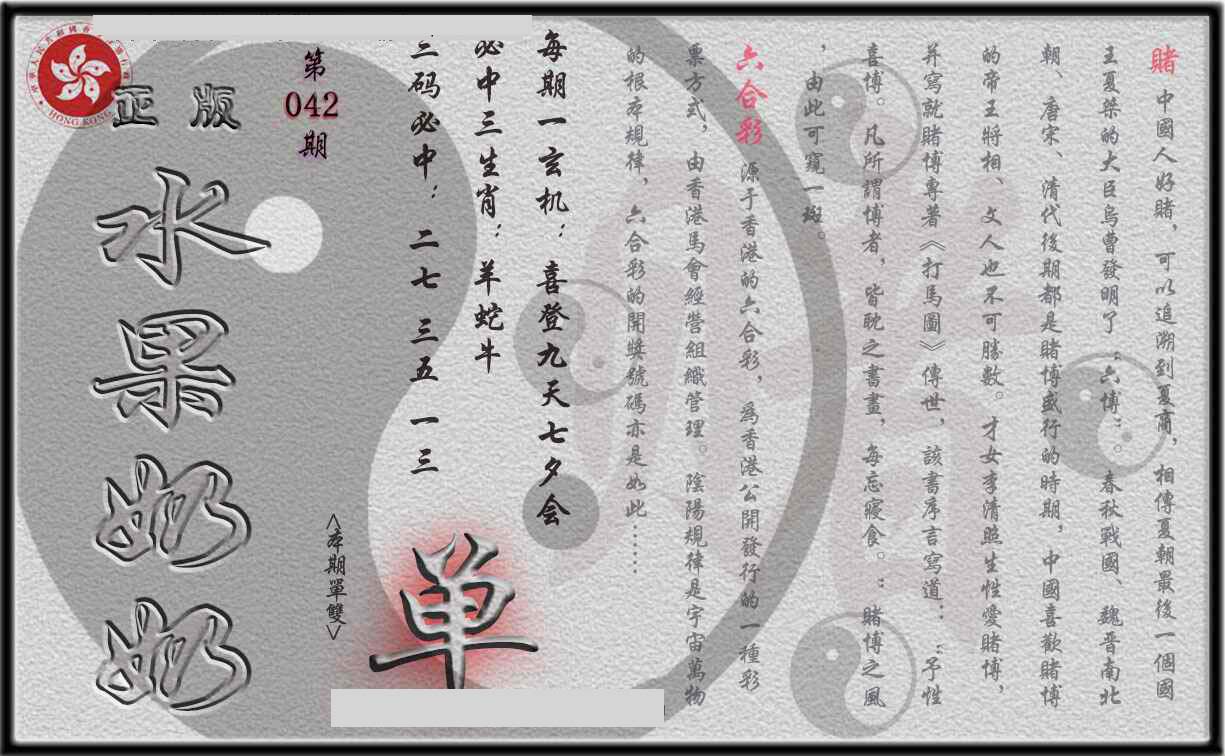 賭 中國人好賭，可以追溯到夏商，相傳夏朝最後一個國
王夏桀的大臣烏曹發明了“六博”。春秋戰國、魏晋南北
朝、唐宋、清代後期都是賭博盛行的時期，中國喜歡賭博
的帝王將相、文人也不可勝數。才女李清照生性愛賭博，
并寫就賭博專著《打馬圖》傳世，該書序言寫道：“予性
喜博。凡所謂博者，皆耽之晝畫，每忘寢食。”賭博之風
，由此可窺一斑。
六合彩 源于香港的六合彩，爲香港公開發行的一種彩
票方式，由香港馬會經營組織管理。陰陽規律是宇宙萬物
的根本規律，六合彩的開獎號碼亦是如此……
每期一玄机：喜登九天七夕会
必中三生肖：羊蛇牛
三码必中：二七 三五 一三
单
<本期單雙>
第
042
期
正版
水果奶奶
HONG KONG